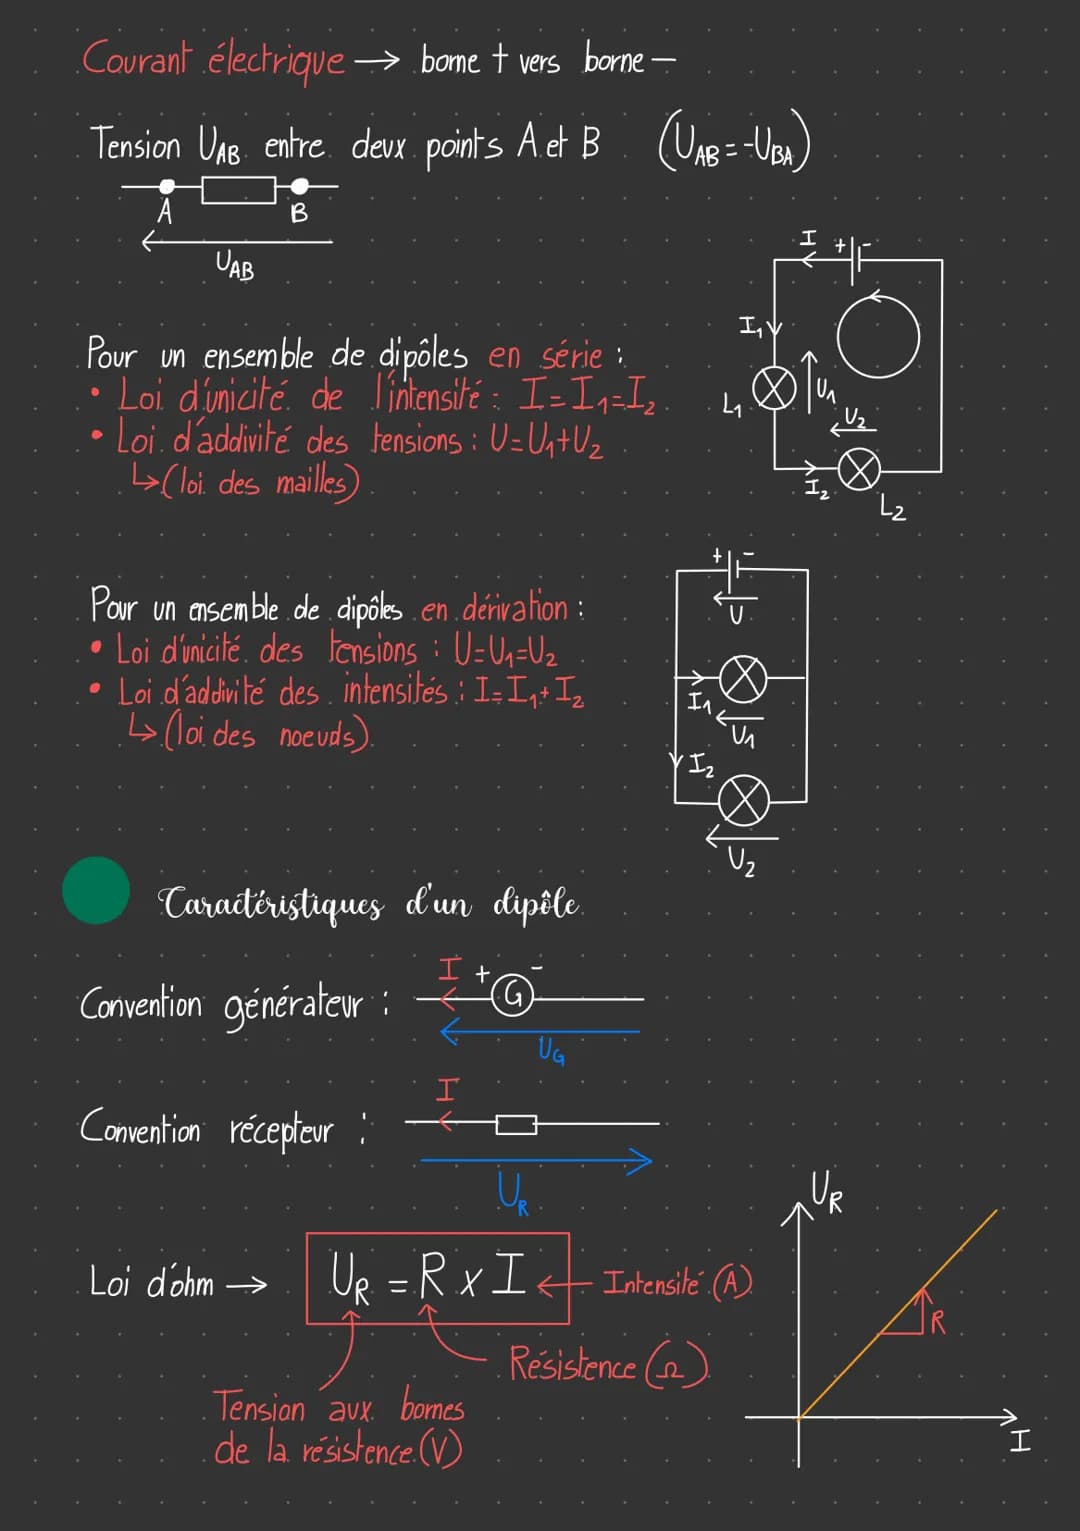 Courant électrique → borne + vers borne -
Tension UAB entre deux points A et B (UAB = -UBA)
A B
UAB
I + -
I1
U1
L1
U2
I2
L2
Pour un ensemble de dipôles en série :
• Loi d'unicité de l'intensité : I = I1 = I2
• Loi d'addivité des tensions : U = U1 + U2
↳ (loi des mailles)
+ -
U
I1
U1
I2
U2
Pour un ensemble de dipôles en dérivation :
• Loi d'unicité des tensions : U = U1 = U2
• Loi d'addivité des intensités : I = I1 + I2
↳ (loi des noeuds)
Caractéristiques d'un dipôle
Convention générateur : I + G -
UG
Convention récepteur : I
UR
Loi d'ohm → UR = R x I ← Intensité (A)
Résistence (Ω)
Tension aux bornes
de la résistence (V)
UR
R
I